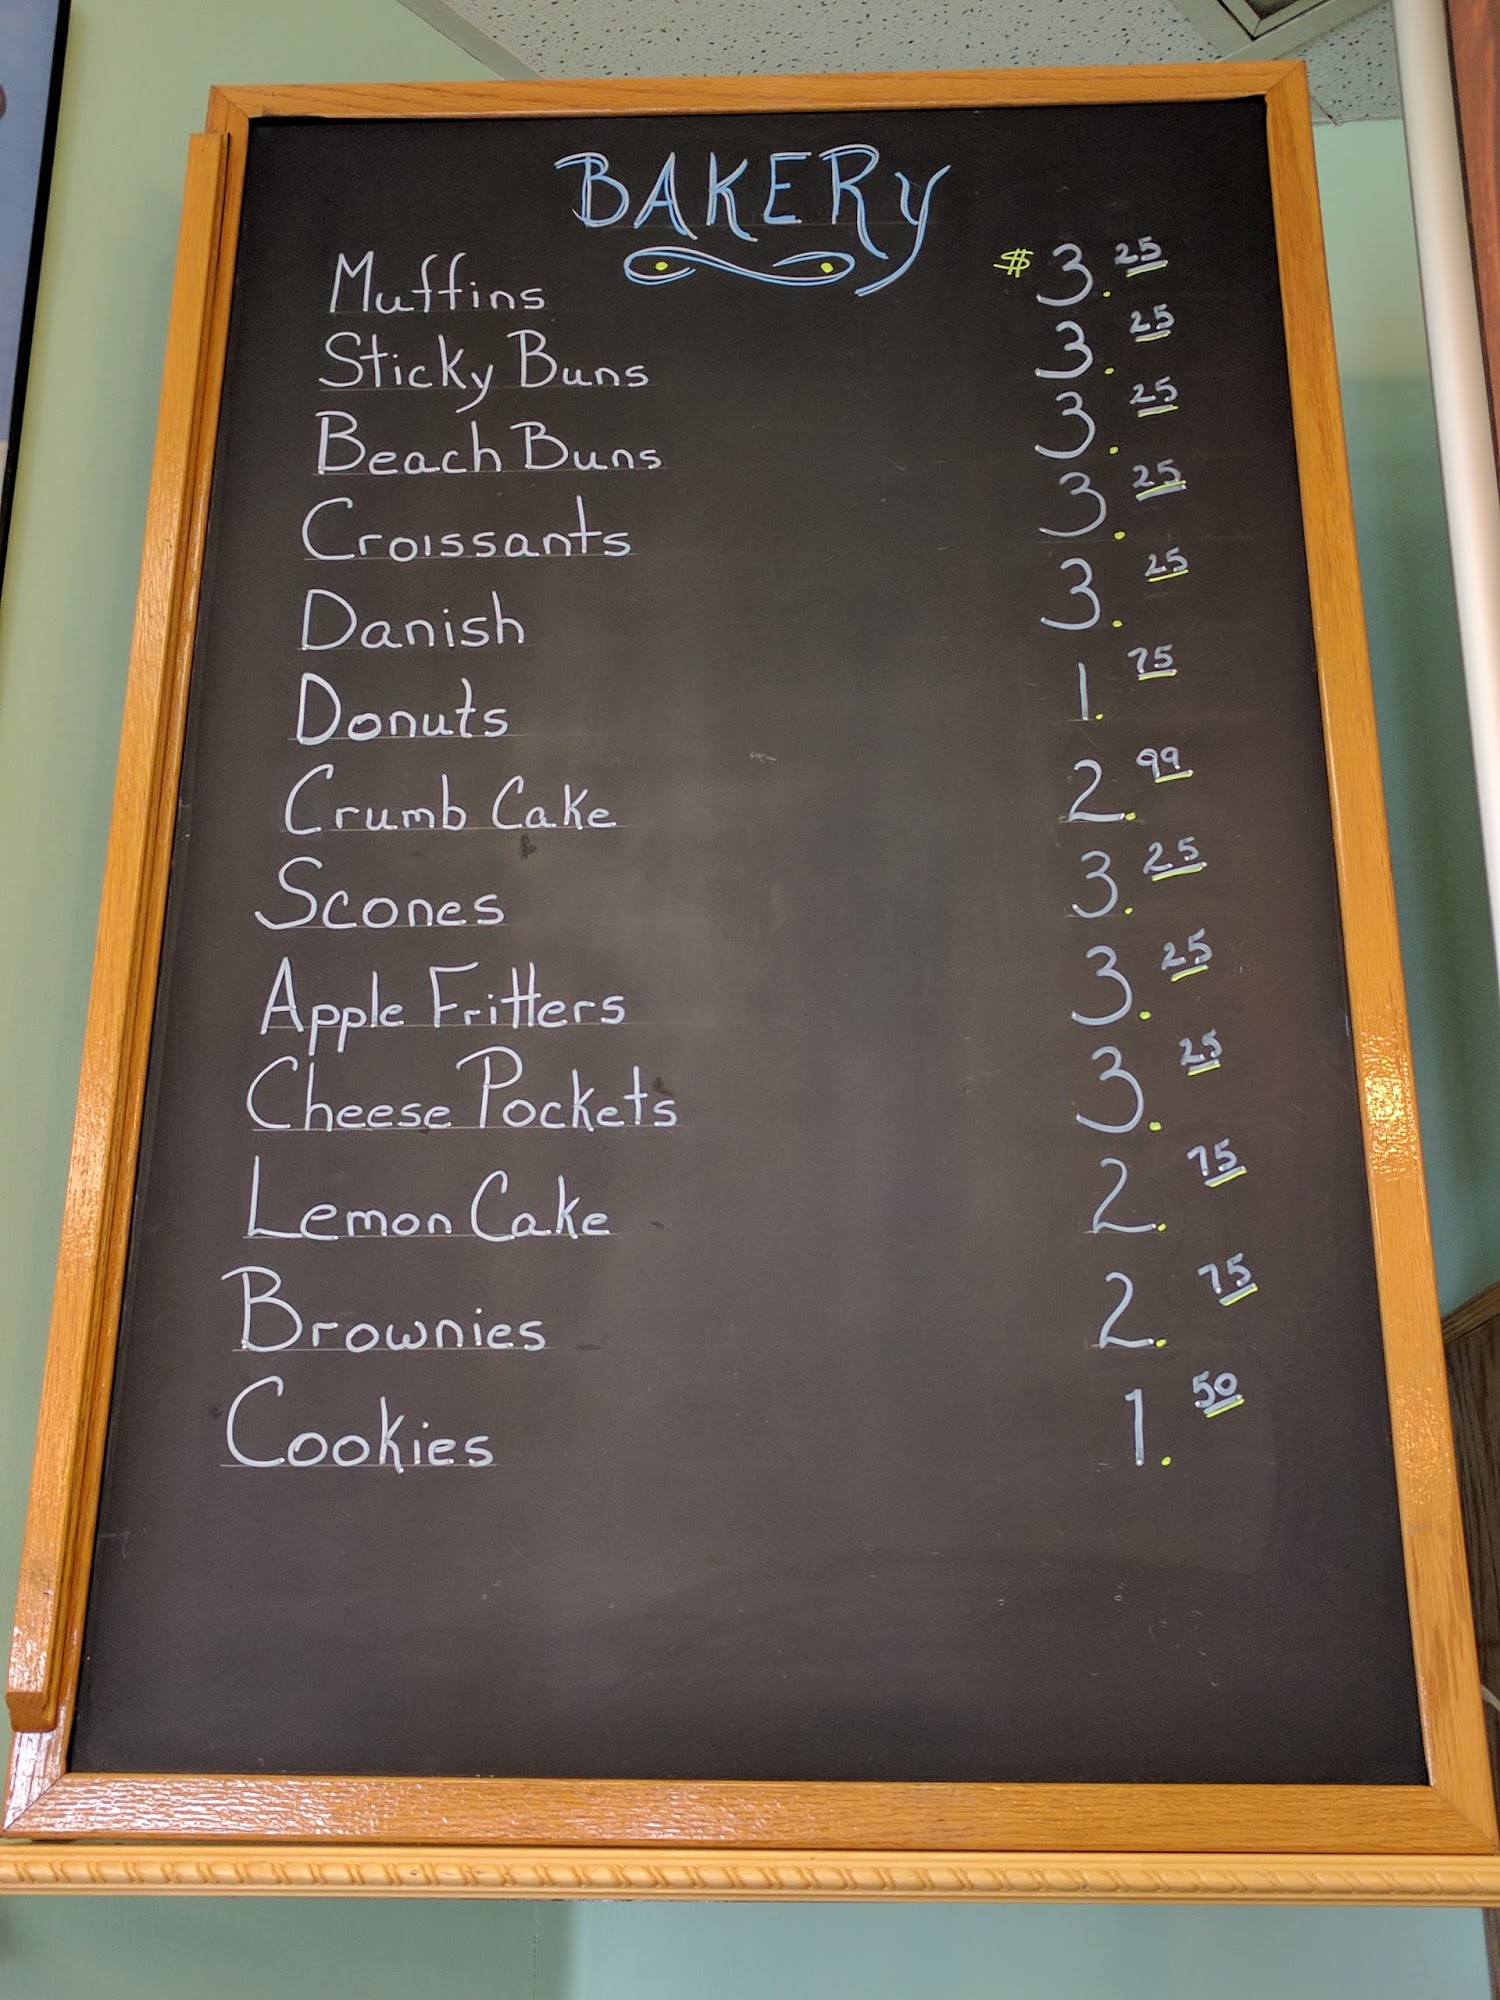 BAKERY
Muffins $3.25
Sticky Buns 3.25
Beach Buns 3.25
Croissants 3.25
Danish 3.25
Donuts 1.75
Crumb Cake 2.99
Scones 3.25
Apple Fritters 3.25
Cheese Pockets 3.25
Lemon Cake 2.75
Brownies 2.75
Cookies 1.50